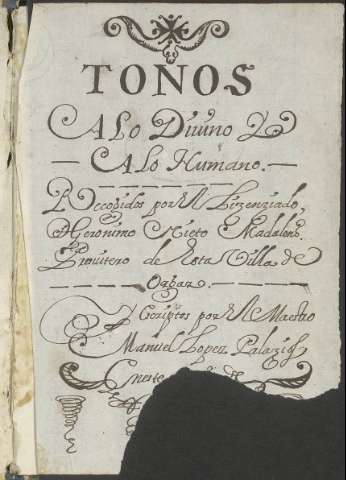 TOÑOS
A Lo Diuino Y
A lo Humano.
Recogidos por el Lizenziado,
Geronimo Nieto Madaleno.
Prouitero de Esta Villa de
Orgaz.
Y Escriptos por el Maestro
Manuel Lopez Palazios